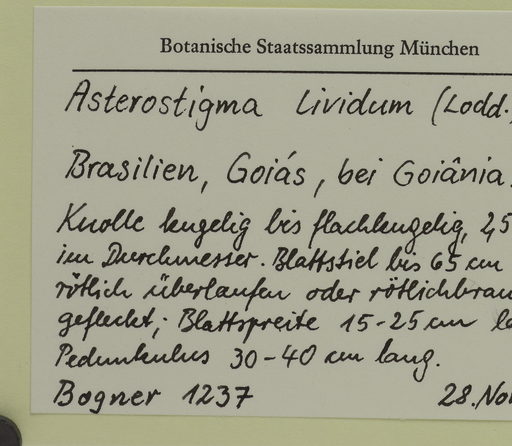 Botanische Staatssammlung München
Asterostigma lividum (Lodd.
Brasilien, Goiás, bei Goiânia.
Knolle kugelig bis flachkugelig, 2,5
im Durchmesser. Blattstiel bis 65 cm
rötlich überlaufen oder rötlichbrau
gefleckt; Blattspreite 15-25 cm
Pedunkulus 30-40 cm lang.
Bogner 1237 28. Nov